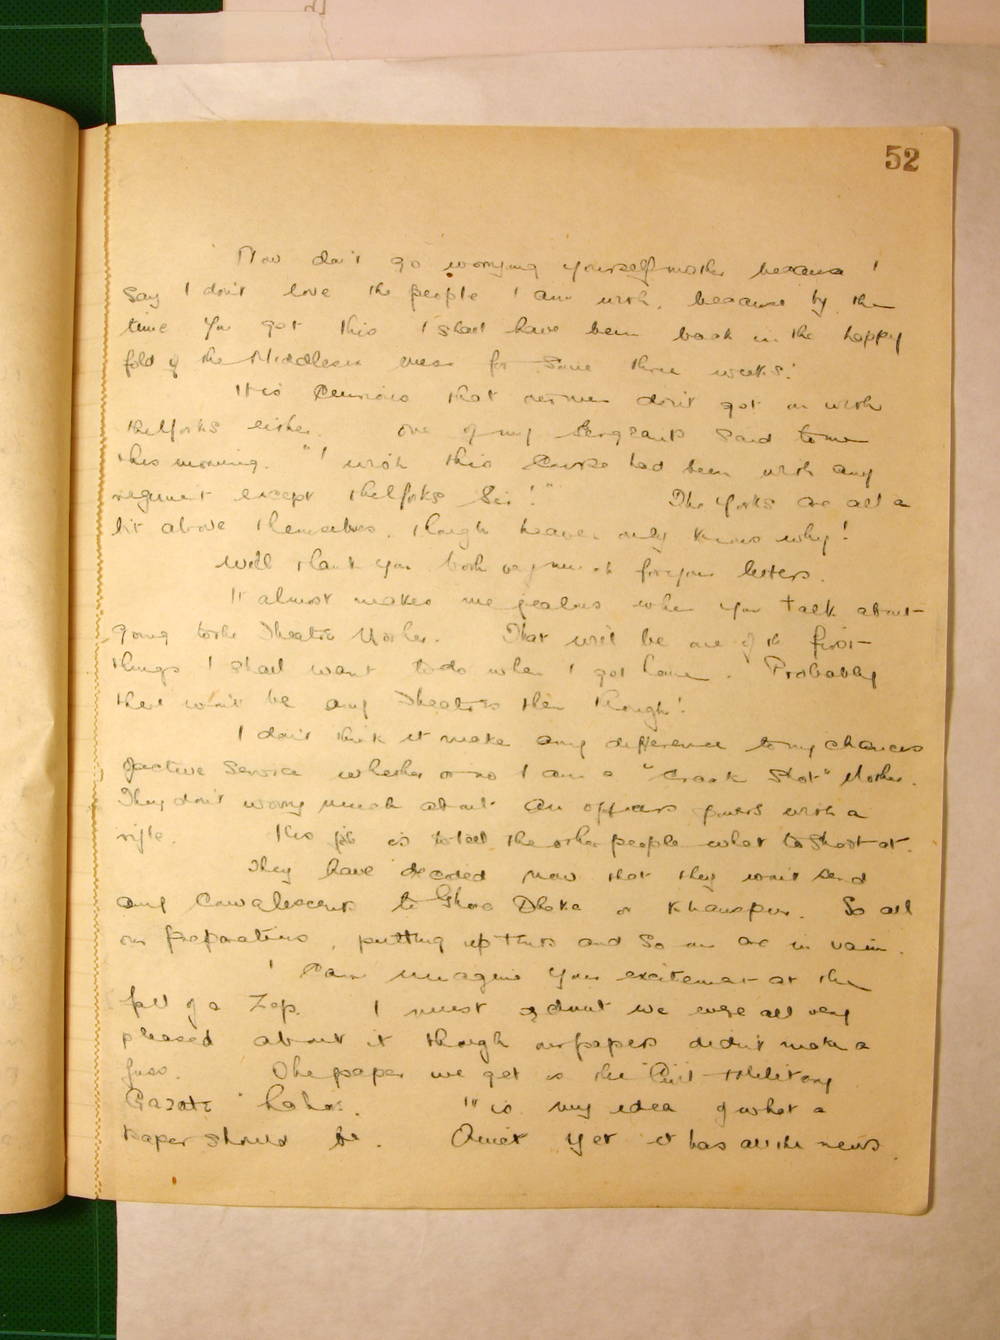 52
Now don't go worrying yourself mother because I
say I don't love the people I am with, because by the
time you get this I shall have been back in the happy
fold of the Middlesex mess for some three weeks!
It is curious that our men don't get on with
the Yorks either. One of my Sergeants said to me
this morning. "I wish this course had been with any
regiment except the Yorks Sir!" The Yorks are all a
bit above themselves, though heaven only knows why!
Well thank you both very much for your letters.
It almost makes me jealous when you talk about
going to the Theatre Mother. That will be one of the first
things I shall want to do when I get home. Probably
there won't be any Theatres then though!
I don't think it makes any difference to my chances
of active service whether or no I am a "Crack Shot" Mother.
They don't worry much about an officers powers with a
rifle. His job is to tell the other people what to shoot at.
They have decided now that they won't send
any Convalescents to Ghora Dhaka or Khanspur. So all
our preparations, putting up tents and so on are in vain.
I can imagine your excitement at the
fall of a Zep. I must admit we were all very
pleased about it though our papers didn't make a
fuss. The paper we get is the "Civil & Military
Gazette" Lahore. It is my idea of what a
paper should be. Quiet yet it has all the news.